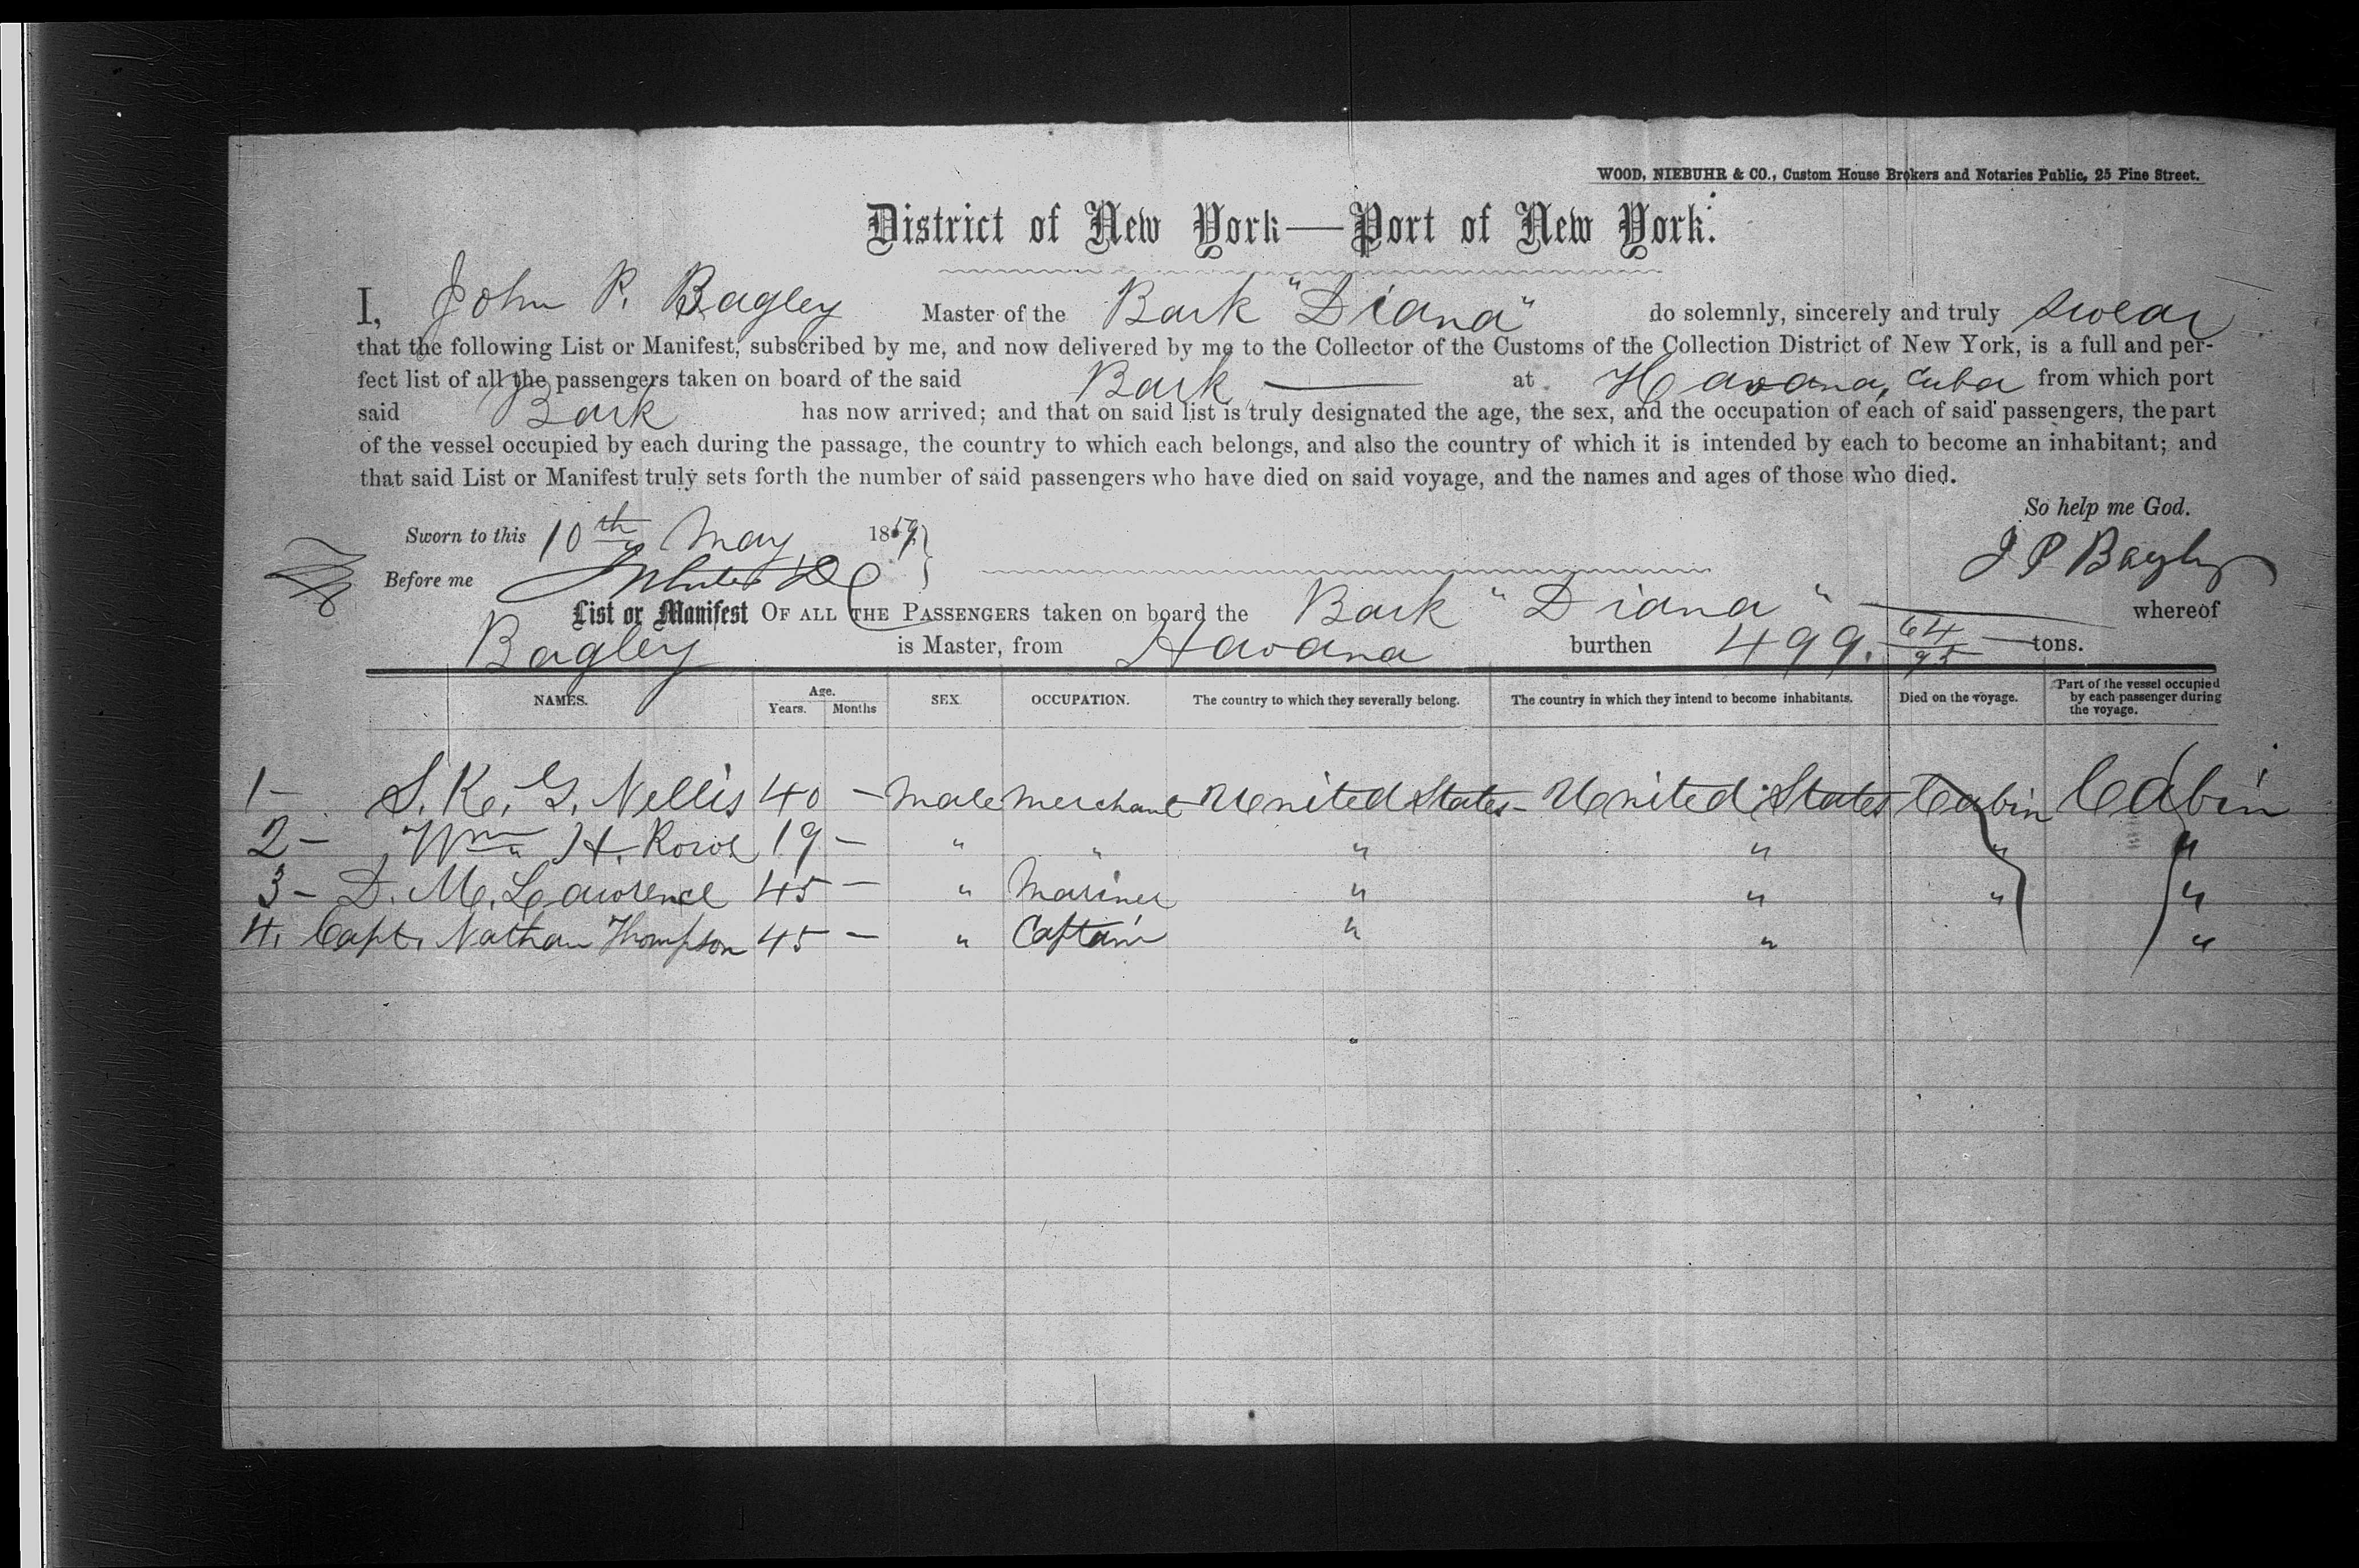 WOOD, NIEBUHR & CO., Custom House Brokers and Notaries Public, 25 Pine Street.
District of New York—Port of New York.
I, John P. Bagley Master of the Bark "Diana" do solemnly, sincerely and truly swear
that the following List or Manifest, subscribed by me, and now delivered by me to the Collector of the Customs of the Collection District of New York, is a full and per-
fect list of all the passengers taken on board of the said Bark — at Havana, Cuba from which port
said Bark has now arrived; and that on said list is truly designated the age, the sex, and the occupation of each of said passengers, the part
of the vessel occupied by each during the passage, the country to which each belongs, and also the country of which it is intended by each to become an inhabitant; and
that said List or Manifest truly sets forth the number of said passengers who have died on said voyage, and the names and ages of those who died.
So help me God.
Sworn to this 10th May 1859
Before me
J P Bagley
List or Manifest OF ALL THE PASSENGERS taken on board the Bark "Diana" — whereof
Bagley is Master, from Havana burthen 499. 64/95 — tons.
NAMES. Age. Years. Months SEX. OCCUPATION. The country to which they severally belong. The country in which they intend to become inhabitants. Died on the voyage. Part of the vessel occupied by each passenger during the voyage.
1 - S. K. G. Nellis 40 - Male Merchant United States - United States Cabin Cabin
2 - Wm H. Rowe 19 - " " " " " "
3 - D. M. Lawrence 45 - " Mariner " " " "
4. Capt. Nathan Thompson 45 - " Captain " " "